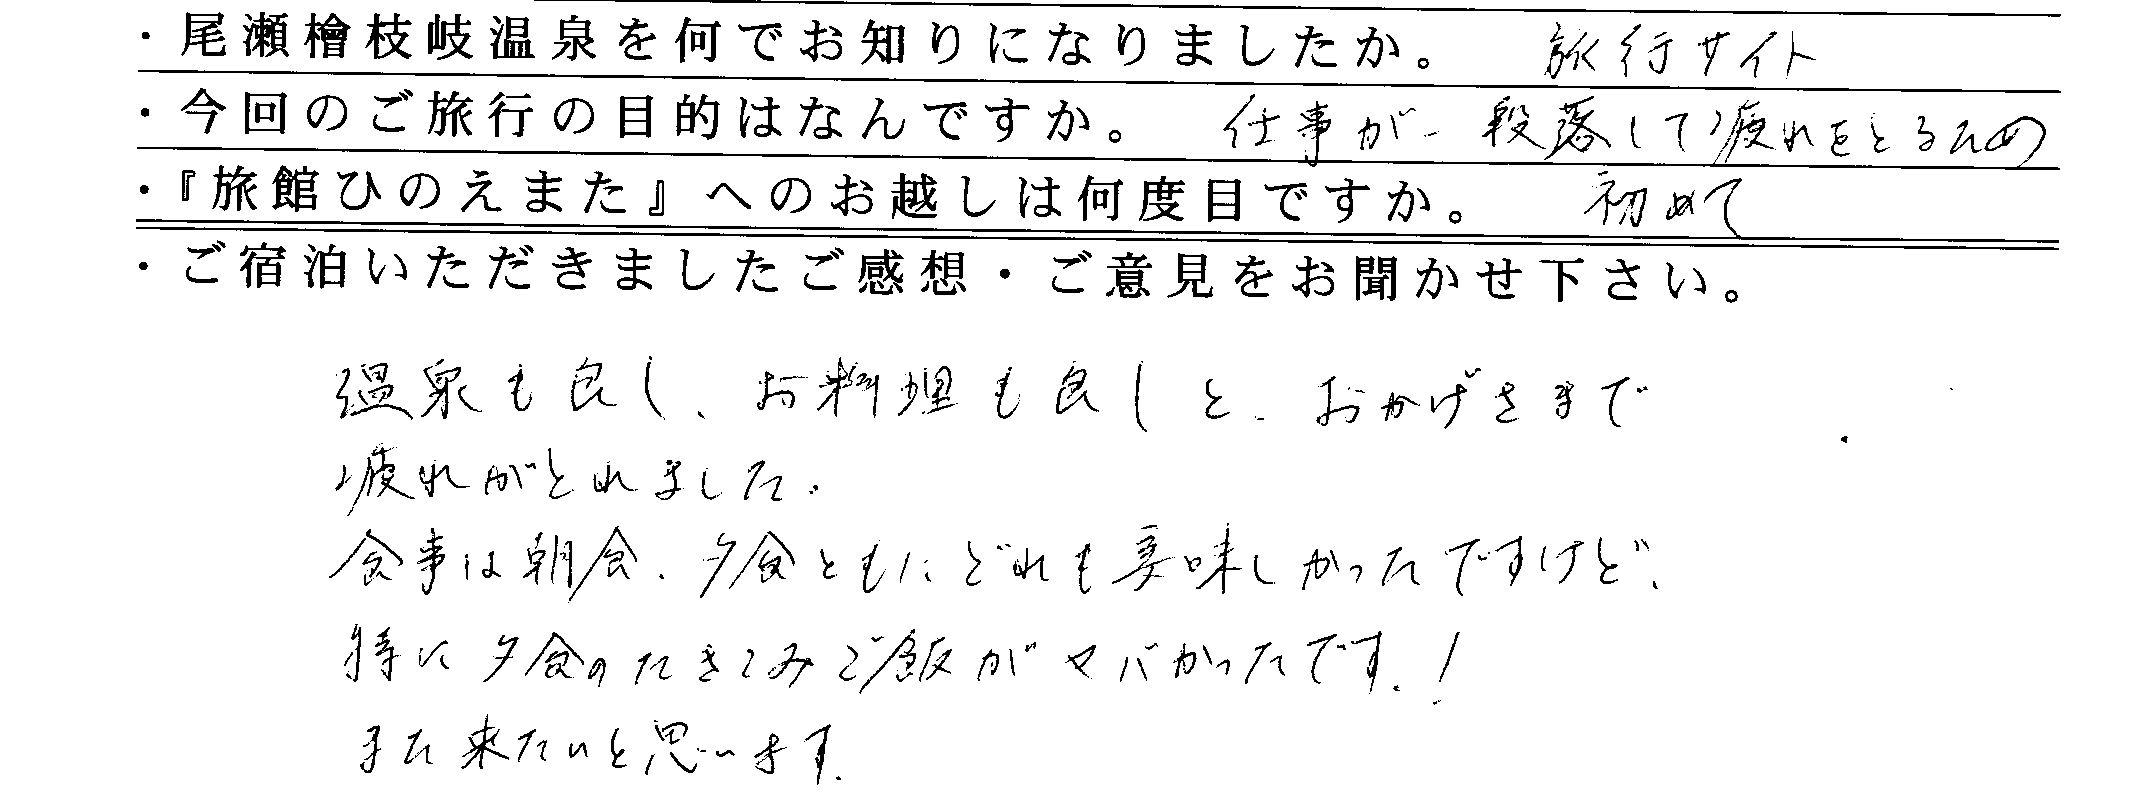 ・尾瀬檜枝岐温泉を何でお知りになりましたか。 旅行サイト
・今回のご旅行の目的はなんですか。 仕事が一段落して疲れをとるため
・『旅館ひのえまた』へのお越しは何度目ですか。 初めて
・ご宿泊いただきましたご感想・ご意見をお聞かせ下さい。
温泉も良し、お料理も良しと、おかげさまで
疲れがとれました。
食事は朝食、夕食ともにどれも美味しかったですけど、
特に夕食のたきこみご飯がヤバかったです!
また来たいと思います。